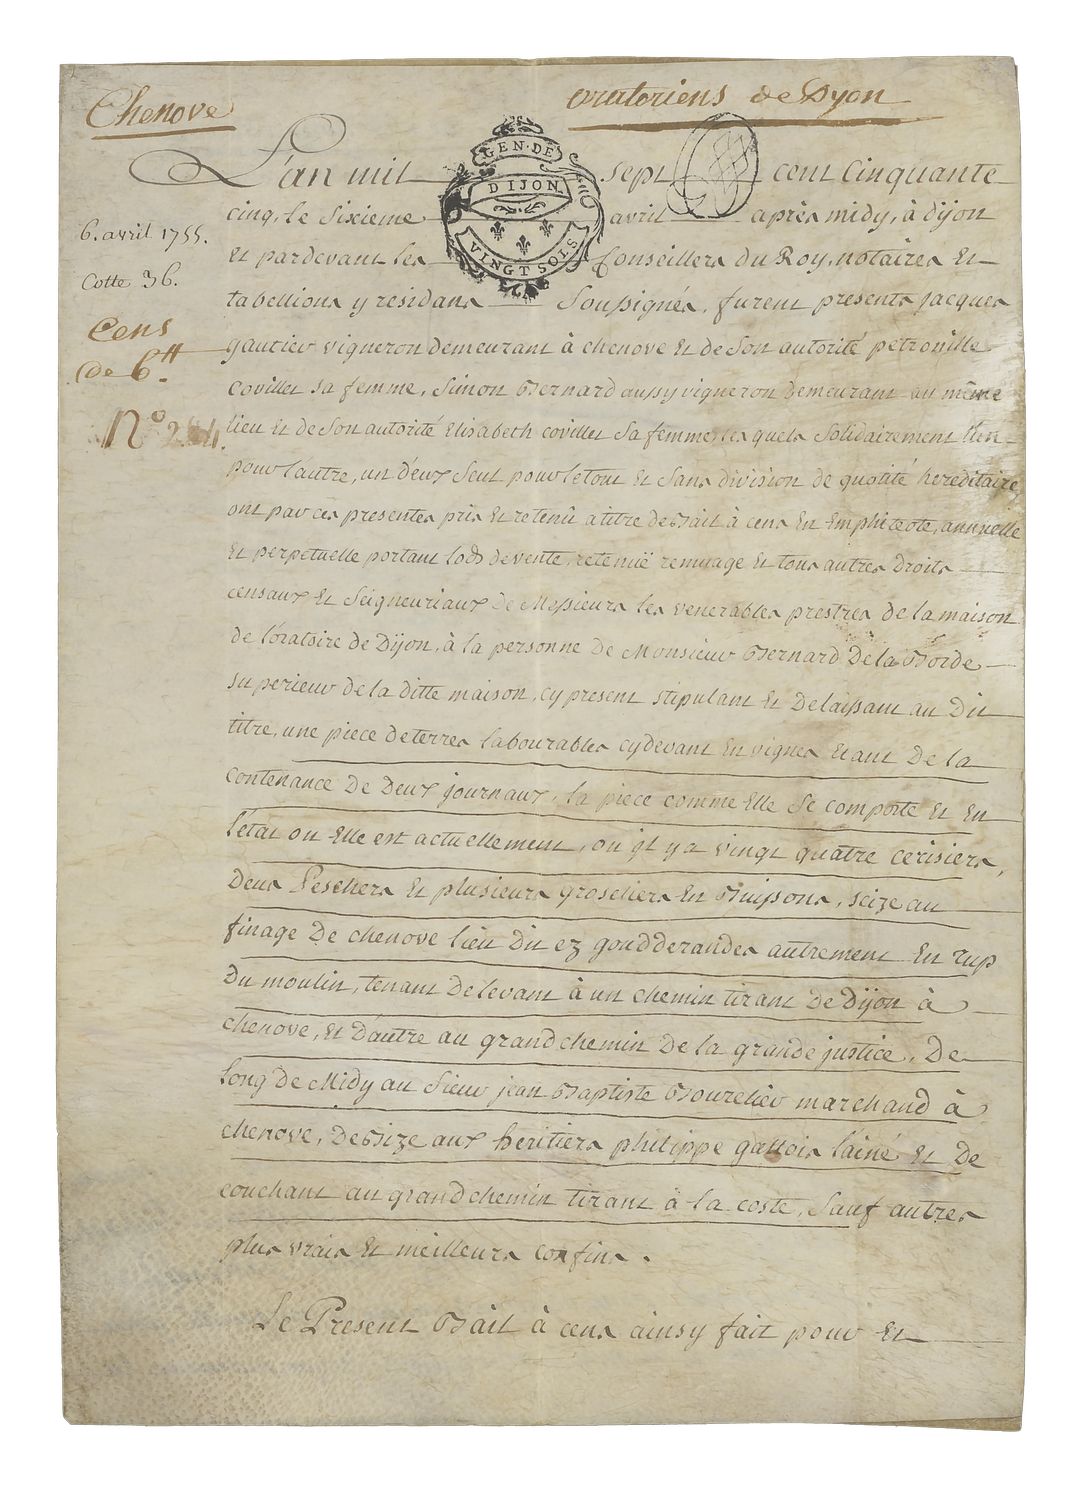 Chenove
oratoriens de Dyon
GEN · DE
DIJON
VINGT SOLS
L'an mil sept cent Cinquante
cinq, le Sixieme avril après midy, à dijon
Et pardevant les Conseillers du Roy, notaires Et
tabellions y residans Soussignés, furent presents jacques
gautier vigneron demeurant à chenove Et de Son autorité petronille
Coviller sa femme, Simon Bernard aussy vigneron demeurant au même
lieu Et de Son autorité Elisabeth coviller Sa femme, lesquels Solidairement l'un
pour l'autre, un d'eux Seul pour le tout Et Sans division de quotité hereditaire
ont par ces presentes pris Et retenû a titre de Bail à cens En Emphiteote, annuelle
Et perpetuelle portant lods de vente, retenuë remuage Et tous autres Droits
censaux Et Seigneuriaux de Messieurs les venerables prestres de la maison
de l'oratoire de Dijon, à la personne de Monsieur Bernard De la Borde
superieur de la ditte maison, cy present stipulant Et Delaissant au Dit
titre, une piece de terres labourables cydevant En vignes Etant de la
Contenance de Deux journaux, la piece comme Elle Se comporte Et En
l'état ou Elle est actuellement, ou jl y a vingt quatre cerisiers,
Deux Peschers Et plusieurs groseliers En Buissons, scize au
finage De chenove lieu Dit ez goudderandes autrement En rup
Du moulin, tenant De levant à un chemin tirant De Dijon à
chenove, Et D'autre au grand chemin De la grande justice, De
long de Midy au Sieur jean Baptiste Bourelier marchand à
chenove, De Bize aux heritiers philippe gallois l'ainé Et De
couchant au grand chemin tirant à la coste, Sauf autres
plus vrais Et meilleurs confins.
Le Present Bail à cens ainsy fait pour Et
6. avril 1755.
Cotte 36.
Cens
de 6ᵗᵗ.
N° 284.